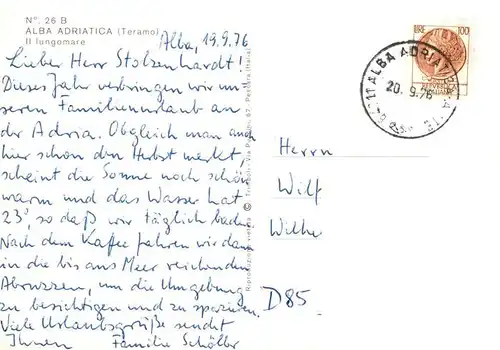 N°. 26 B
ALBA ADRIATICA (Teramo)
Il lungomare
Alba, 19.9.76
Lieber Herr Stolzenhardt!
Dieses Jahr verbringen wir un-
seren Familienurlaub an
der Adria. Obgleich man auch
hier schon den Herbst merkt,
scheint die Sonne noch schön
warm und das Wasser hat
23°, so daß wir täglich baden.
Nach dem Kaffee fahren wir dann
in die bis ans Meer reichenden
Abruzzen, um die Umgebung
zu besichtigen und zu spazieren.
Viele Urlaubsgrüße sendet
Ihnen Familie Schöller
Riproduzione vietata
LIRE 100
ALBA ADRIATICA
20.9.76
Herrn
Wilf
Wilke
D85.